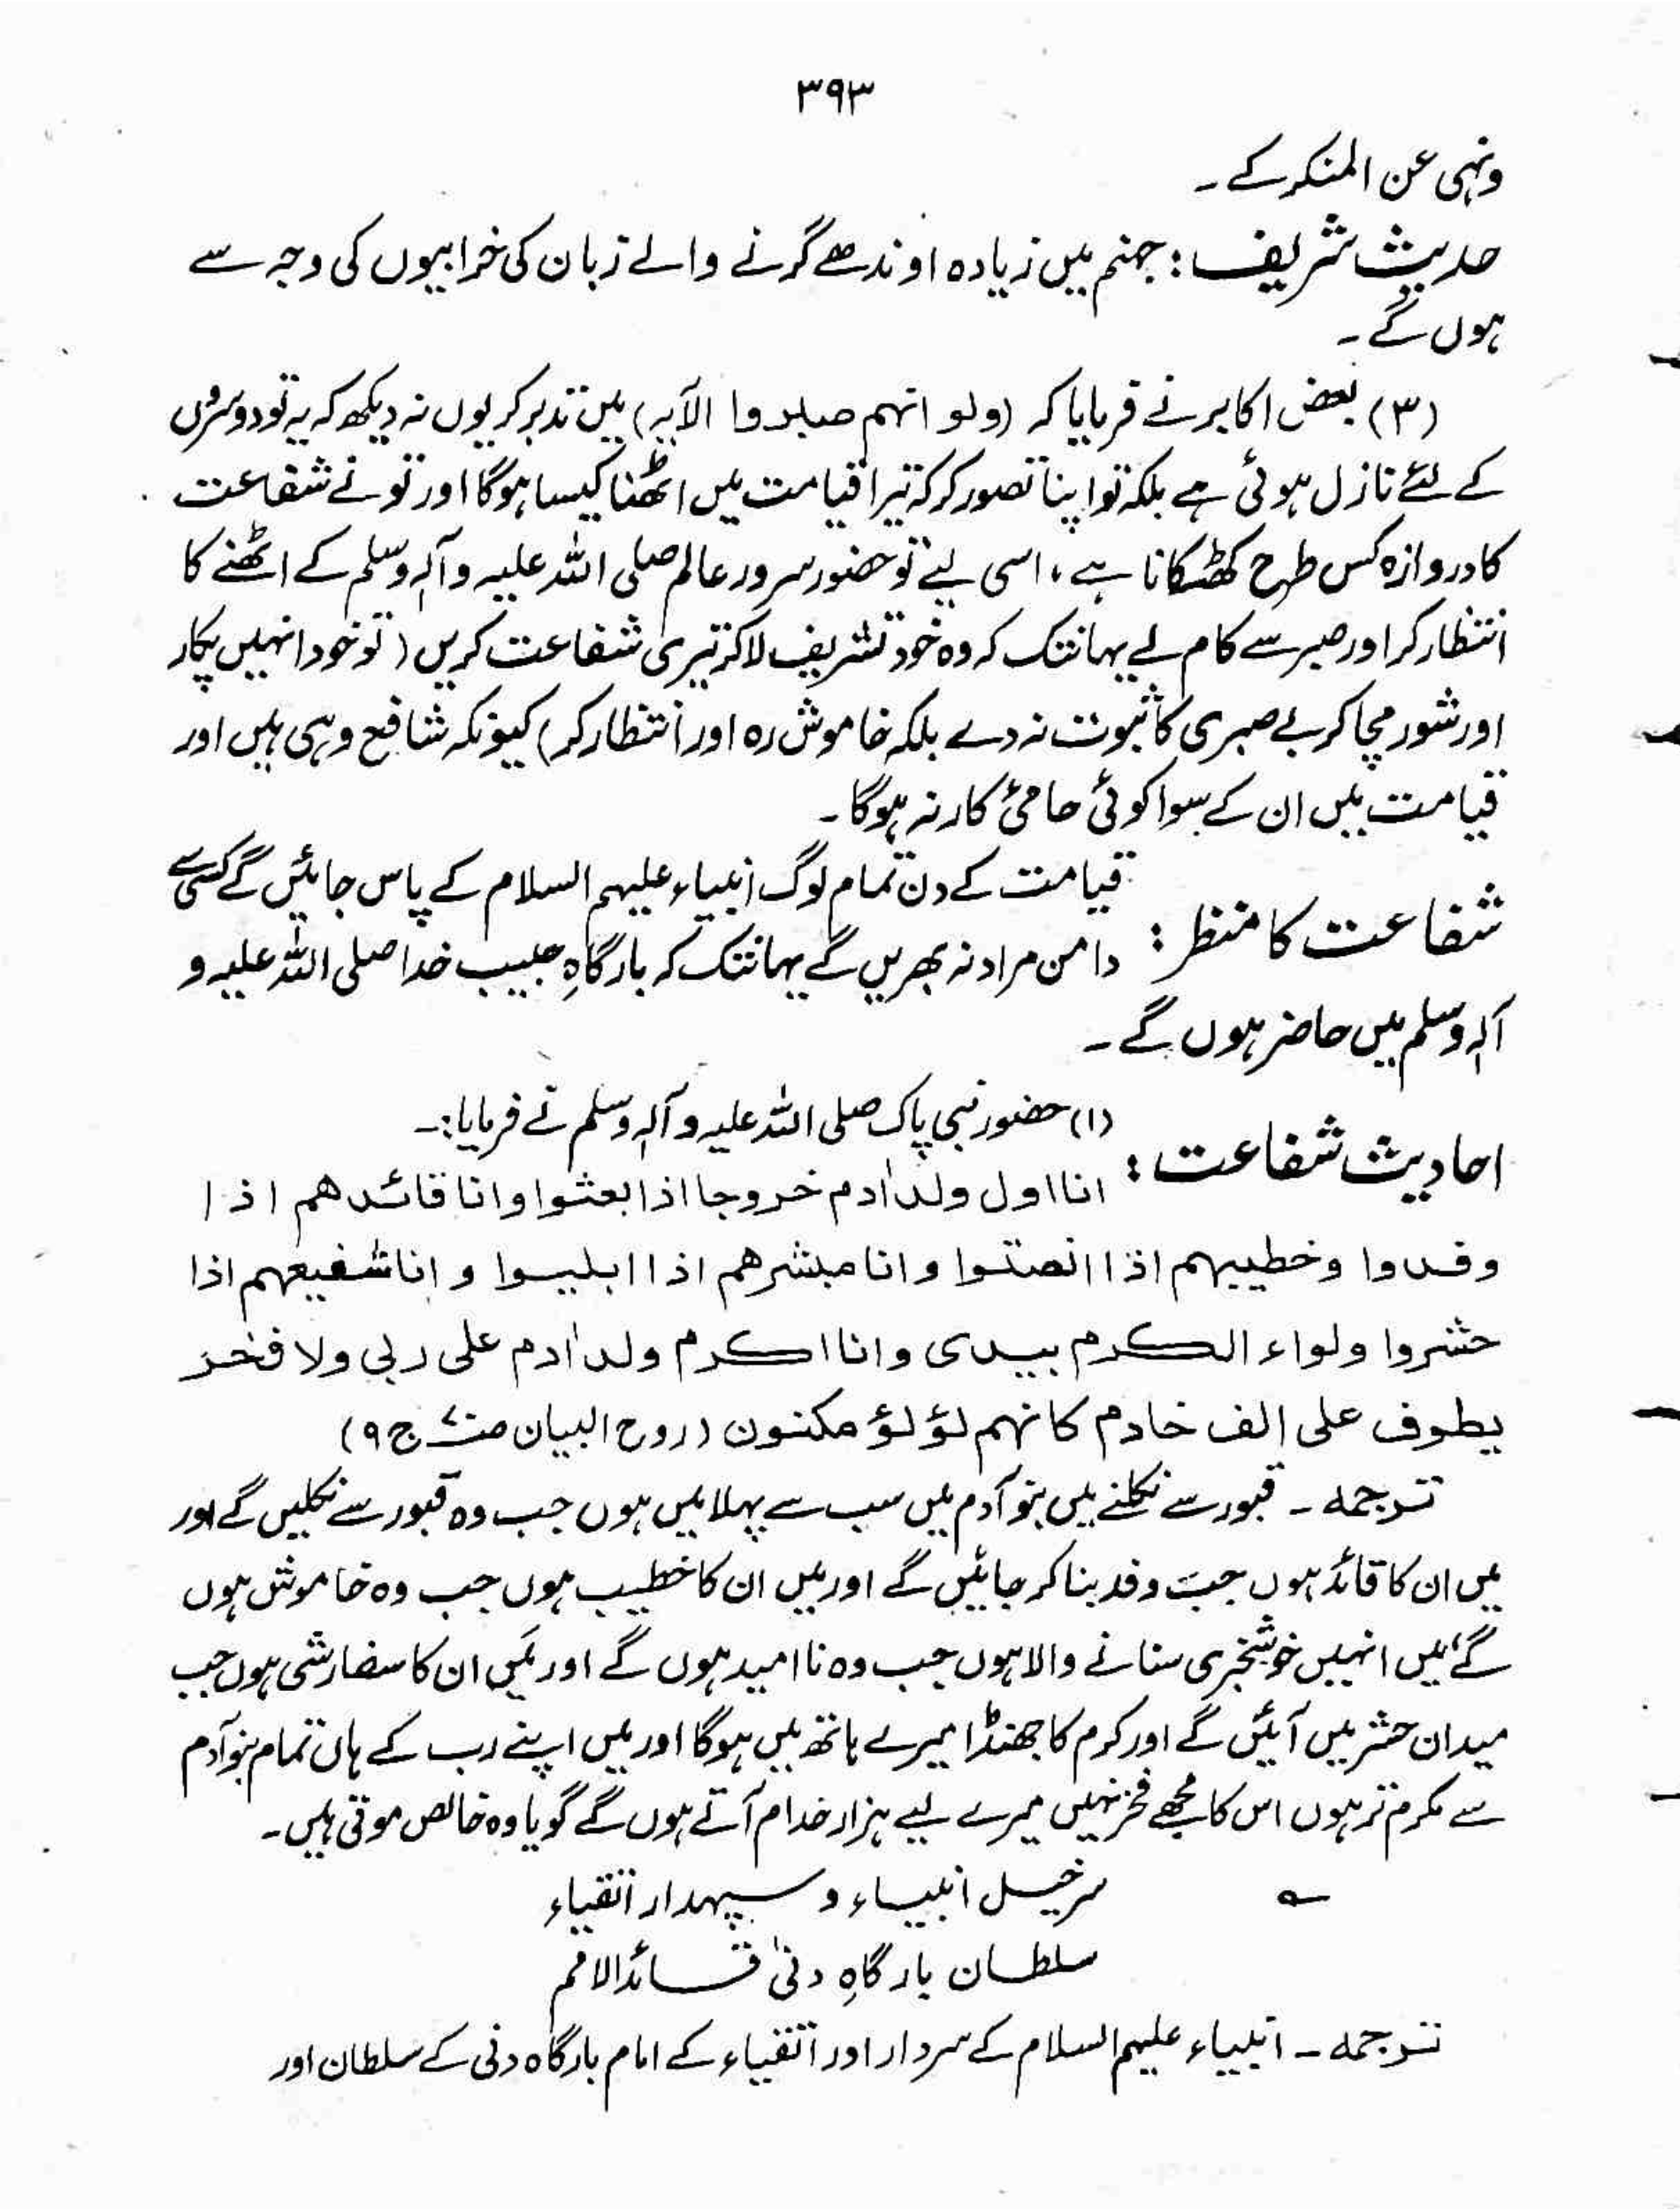 ۳۹۳
ونہی عن المنکر کے ۔
حدیث شریف : جہنم میں زیادہ اوندھے گرنے والے زبان کی خرابیوں کی وجہ سے
ہوں گے ۔
(۳) بعض اکابر نے فرمایا کہ (ولو انہم صبروا الآیہ) میں تدبر کر یوں نہ دیکھ کہ یہ تو دوسروں
کے لئے نازل ہوئی ہے بلکہ تو اپنا تصور کر کہ تیرا قیامت میں اٹھنا کیسا ہوگا اور تو نے شفاعت
کا دروازہ کس طرح کھٹکانا ہے ، اسی لیے تو حضور سرور عالم صلی اللہ علیہ وآلہٖ وسلم کے اٹھنے کا
انتظار کر اور صبر سے کام لے یہانتک کہ وہ خود تشریف لاکر تیری شفاعت کریں ( تو خود انہیں پکار
اور شور مچا کر بے صبری کا ثبوت نہ دے بلکہ خاموش رہ اور انتظار کر ) کیونکہ شافع وہی ہیں اور
قیامت میں ان کے سوا کوئی حامئ کار نہ ہوگا ۔
شفاعت کا منظر : قیامت کے دن تمام لوگ انبیاء علیہم السلام کے پاس جائیں گے کسی سے
دامن مراد نہ بھریں گے یہانتک کہ بارگاہِ حبیب خدا صلی اللہ علیہ و
آلہٖ وسلم میں حاضر ہوں گے ۔
احادیث شفاعت : (۱) حضور نبی پاک صلی اللہ علیہ وآلہٖ وسلم نے فرمایا :۔
انا اول ولد اٰدم خروجا اذا بعثوا وانا قائدهم اذا
وفدوا وخطيبهم اذا انصتوا وانا مبشرهم اذا ابلسوا و انا شفيعهم اذا
حشروا ولواء الكرم بيدى وانا اكرم ولد اٰدم على ربى ولا فخر
يطوف على الف خادم كانهم لؤلؤ مكنون (روح البیان ج ۹)
ترجمہ ۔ قبور سے نکلنے میں بنو آدم میں سب سے پہلا میں ہوں جب وہ قبور سے نکلیں گے اور
میں ان کا قائد ہوں جب وفد بنا کر جائیں گے اور میں ان کا خطیب ہوں جب وہ خاموش ہوں
گے میں انہیں خوشخبری سنانے والا ہوں جب وہ ناامید ہوں گے اور میں ان کا سفارشی ہوں جب
میدان حشر میں آئیں گے اور کرم کا جھنڈا میرے ہاتھ میں ہوگا اور میں اپنے رب کے ہاں تمام بنو آدم
سے مکرم تر ہوں اس کا مجھے فخر نہیں میرے لیے ہزار خدام آتے ہوں گے گویا وہ خالص موتی ہیں ۔
سرخیل انبیاء و سپہدار اتقیاء
سلطان بارگاہِ دنیٰ قائد الامم
ترجمہ ۔ انبیاء علیہم السلام کے سردار اور اتقیاء کے امام بارگاہ دنی کے سلطان اور